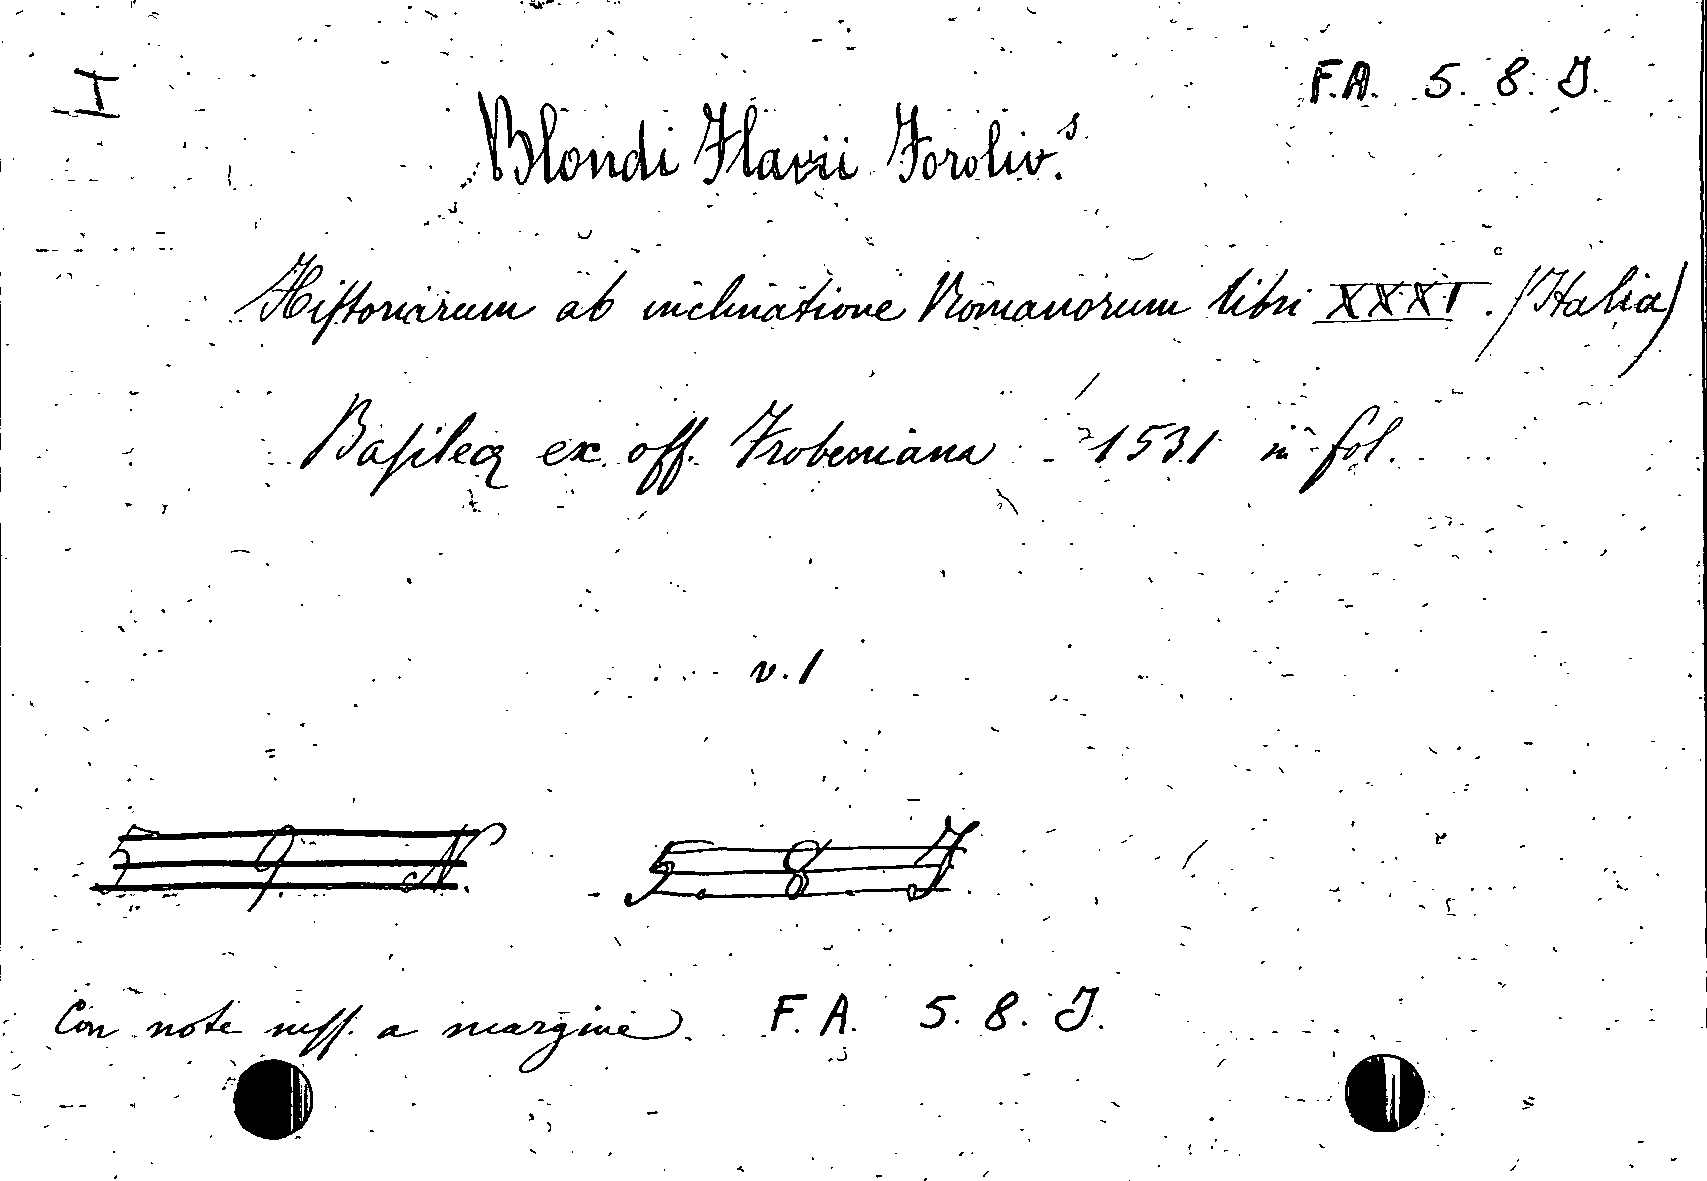 H
F.A. 5. 8. J.
Blondi Flavii Foroliv.s
Hiſtoriarum ab inclinatione Romanorum libri XXXI. (Italia)
Baſileæ ex off. Frobeniana 1531 in fol.
v. 1
5 9 N.
5. 8. J.
Con note mſſ. a margine. F. A. 5. 8. J.